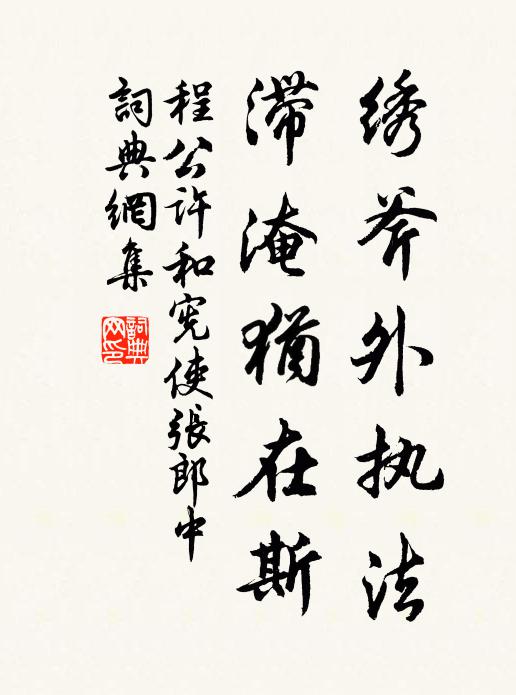 绣斧外执法
滞淹犹在斯
程公许和宪使張郎中
詞典網集
詞典
网印